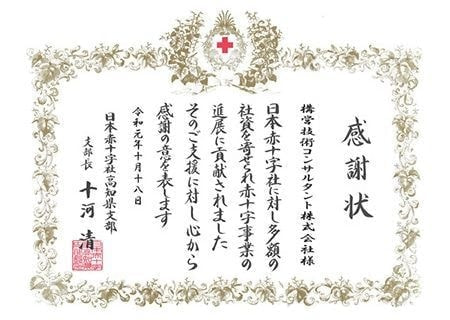 感謝状
構営技術コンサルタント株式会社様
日本赤十字社に対し多額の
社資を寄せられ赤十字事業の
進展に貢献されました
そのご支援に対し心から
感謝の意を表します
令和元年十月十八日
日本赤十字社高知県支部
支部長 十河 清